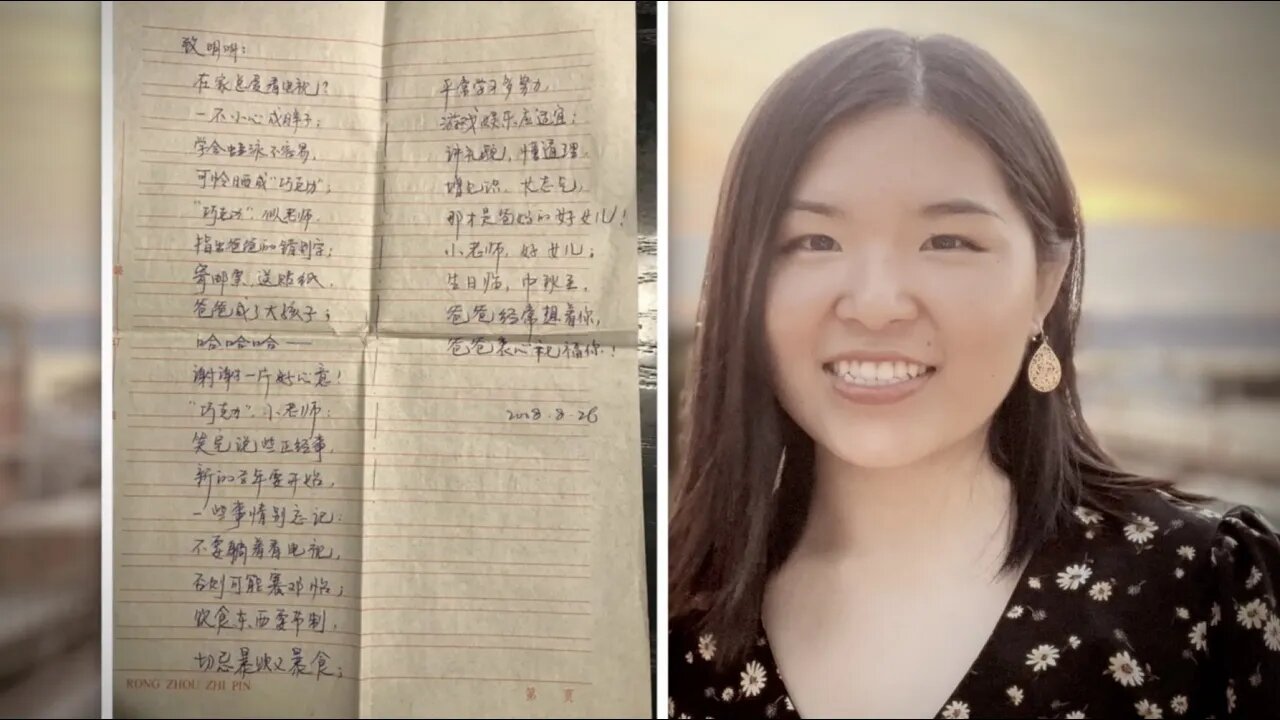 致明
在家总爱看电视?
一不小心成胖子;
学会蛙泳不容易,
可怜晒成“巧克力”;
“巧克力”,似老师,
指出爸爸的错别字;
寄邮票,送贴纸,
爸爸成了大孩子;
哈哈哈——
谢谢一片好心意!
“巧克力”,小老师:
笑完说些正经事,
新的学年要开始,
一些事情别忘记:
不要躺着看电视,
否则可能赛邓
饮食东西要节制,
切忌暴饮又暴食;
平常学习多努力,
游戏娱乐应适宜;
讲礼貌,懂道理,
增知识,长志气,
那才是爸妈的好女儿!
小老师,好女儿;
生日临,中秋至,
爸爸经常想着你,
爸爸衷心祝福你!
2008.8.26
RONG ZHOU ZHI PIN
第 页